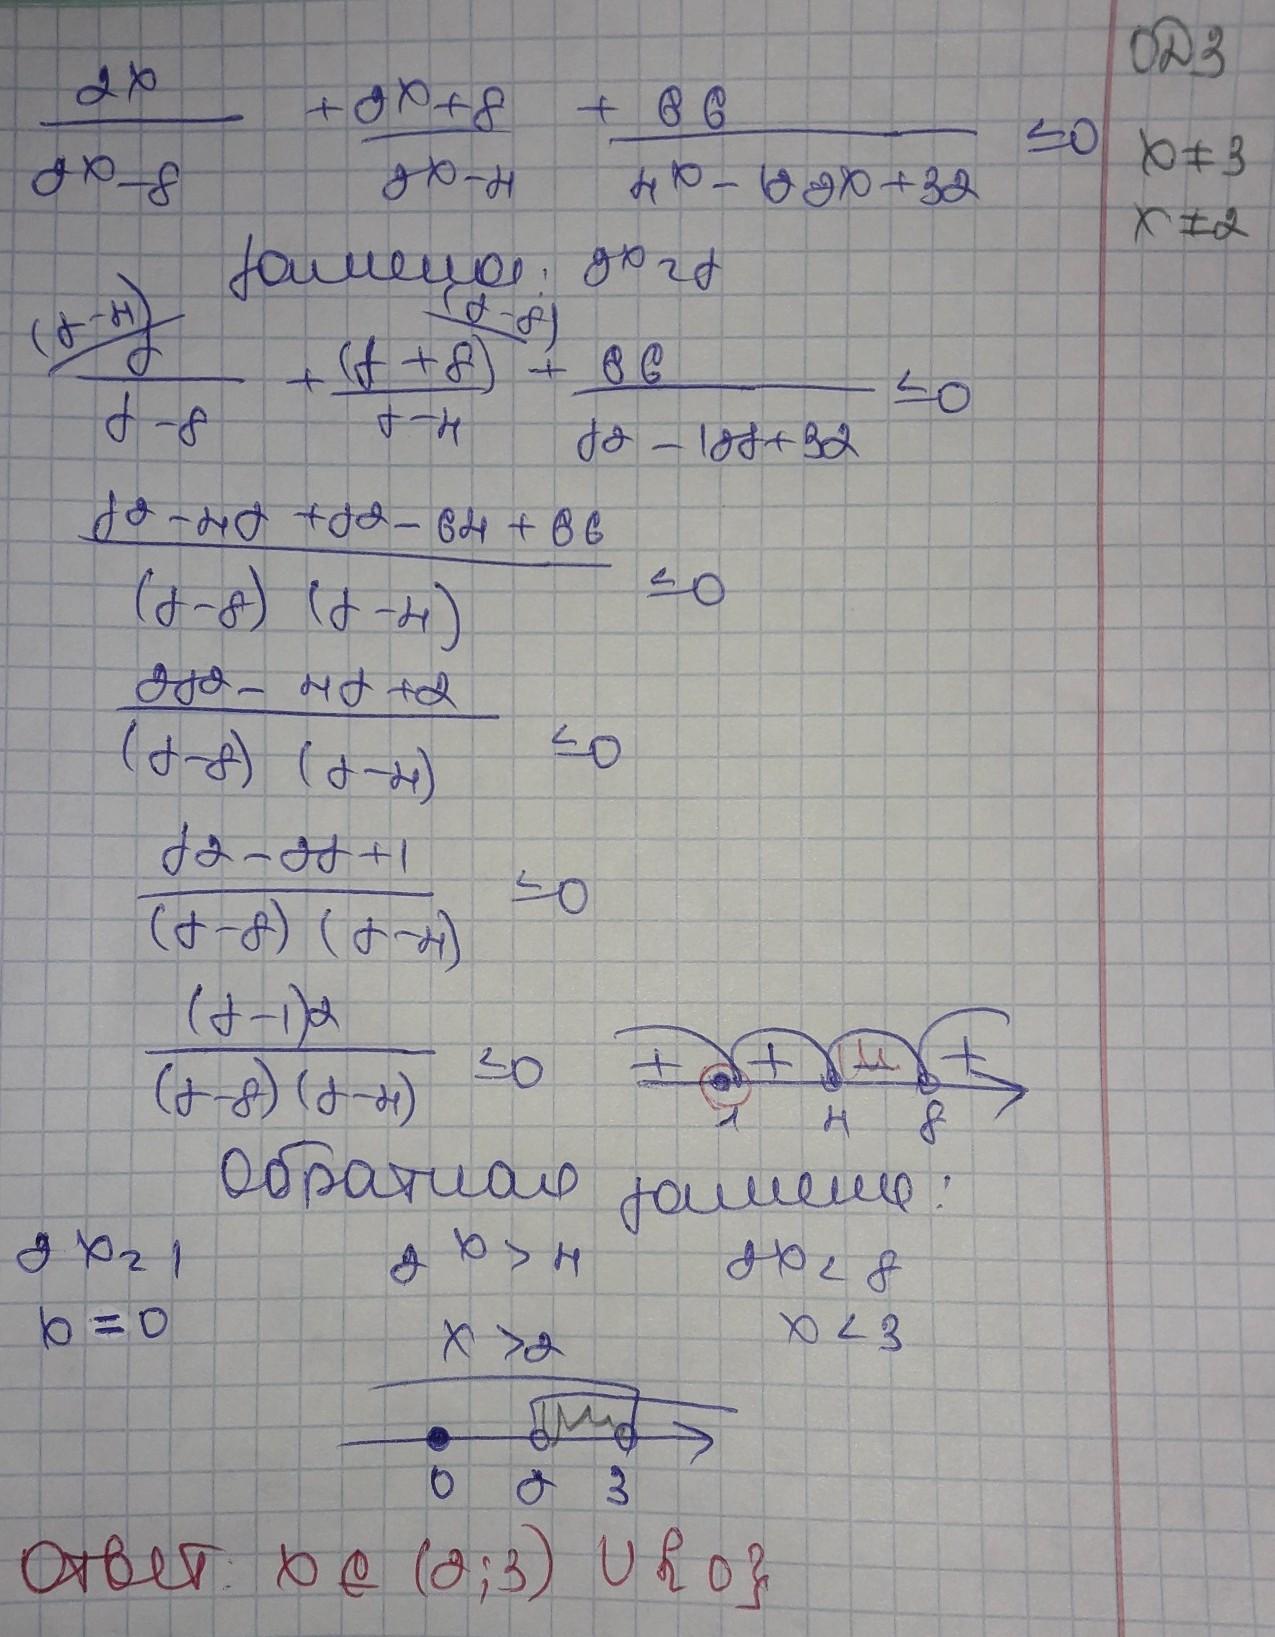 ОДЗ
x ≠ 3
x ≠ 2
2^x/(2^x-8) + (2^x+8)/(2^x-4) + 66/(4^x-12·2^x+32) ≤0
Замена: 2^x=t
(t-4) (t-8)
t/(t-8) + (t+8)/(t-4) + 66/(t2-12t+32) ≤0
t2-4t+t2-64+66
(t-8) (t-4) ≤0
2t2-4t+2
(t-8) (t-4) ≤0
t2-2t+1
(t-8) (t-4) ≤0
(t-1)2
(t-8)(t-4) ≤0
+ + - +
1 4 8
Обратная замена:
2^x=1 2^x>4 2^x<8
x=0 x>2 x<3
0 2 3
Ответ: x∈(2;3) U {0}